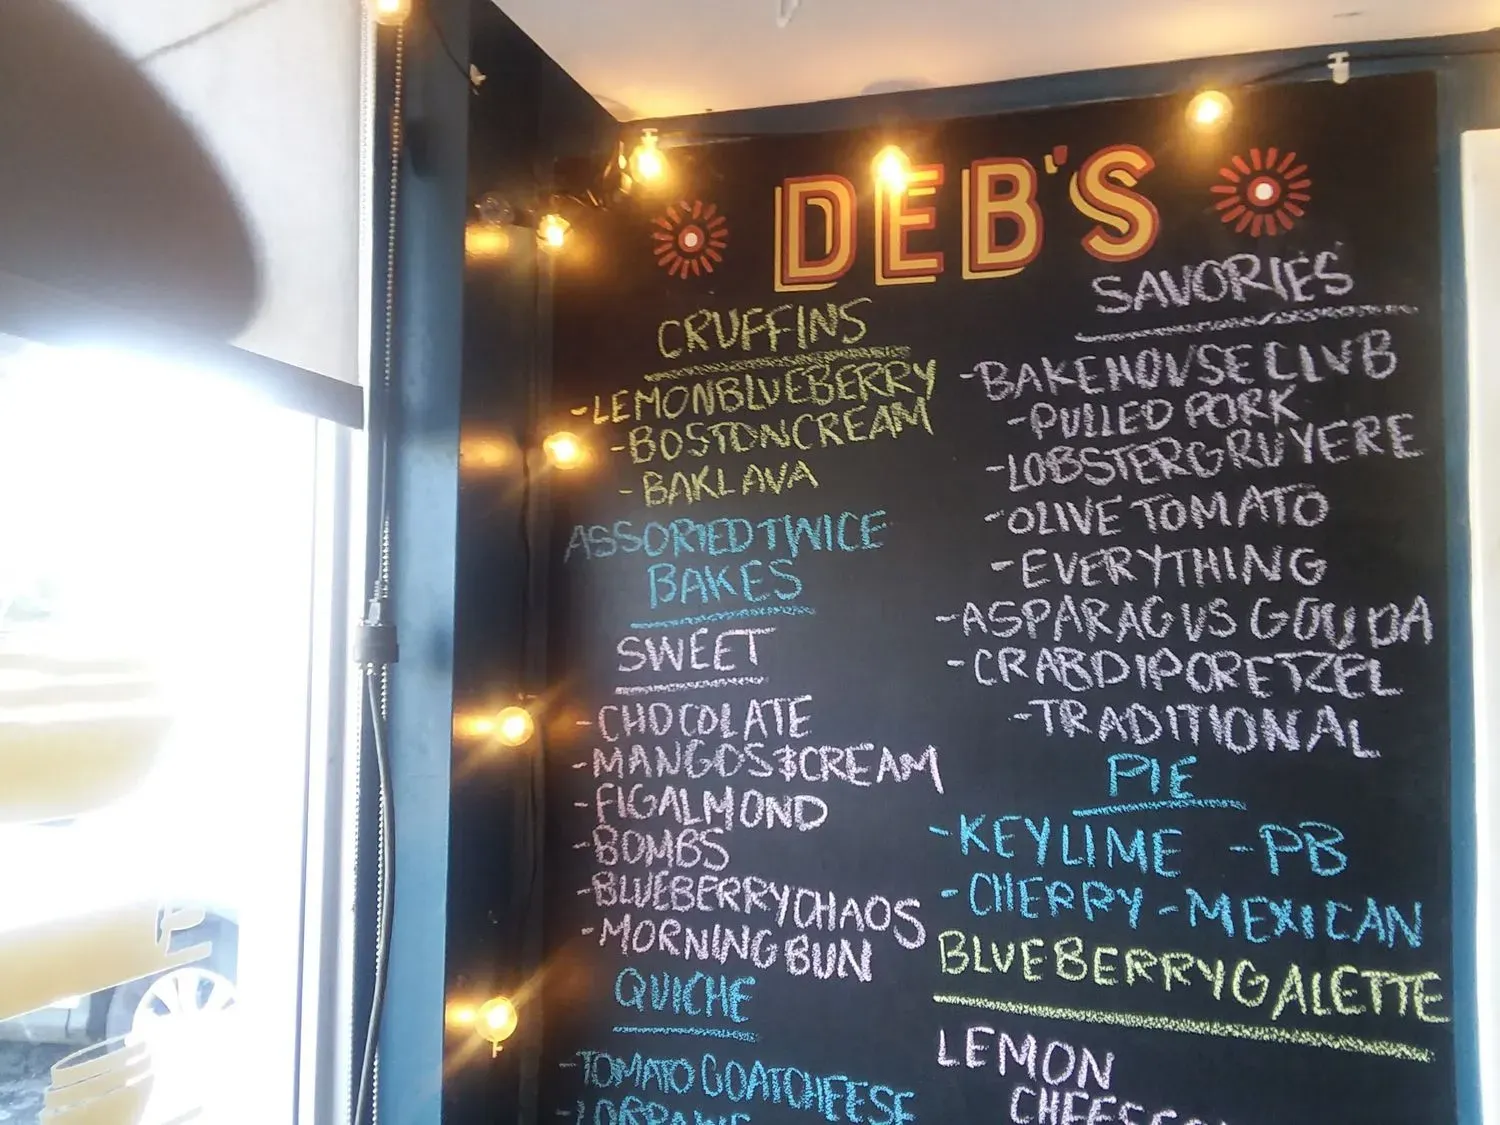 DEB'S
CRUFFINS
-LEMON BLUEBERRY
-BOSTON CREAM
-BAKLAVA
ASSORTED TWICE
BAKES
SWEET
-CHOCOLATE
-MANGOS & CREAM
-FIG ALMOND
-BOMBS
-BLUEBERRY CHAOS
-MORNING BUN
QUICHE
-TOMATO GOAT CHEESE
SAVORIES
-BAKEHOUSE CLUB
-PULLED PORK
-LOBSTER GRUYERE
-OLIVE TOMATO
-EVERYTHING
-ASPARAGUS GOUDA
-CRAB DIP PRETZEL
-TRADITIONAL
PIE
-KEYLIME -PB
-CHERRY -MEXICAN
BLUEBERRY GALETTE
LEMON